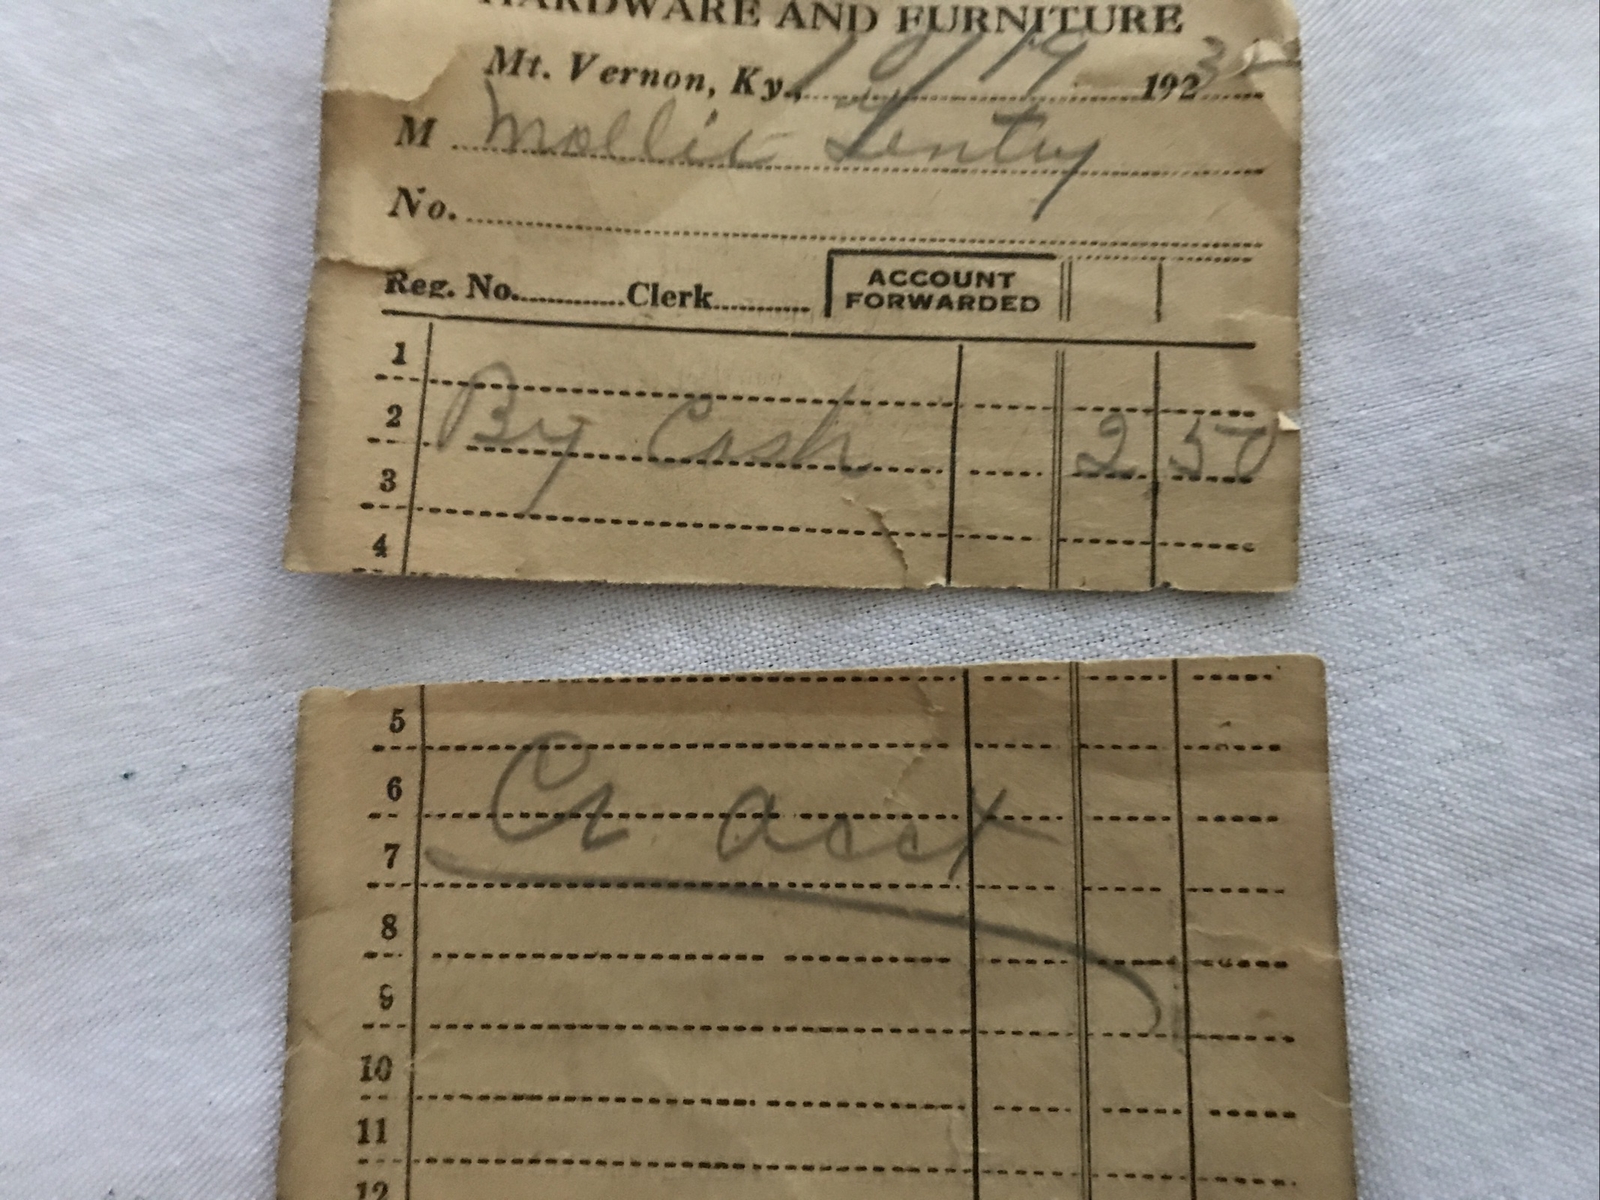 HARDWARE AND FURNITURE
Mt. Vernon, Ky., 10/19 192
M Mollie Gentry
No.
Reg. No. Clerk ACCOUNT FORWARDED
1
2 By Cash 2 50
3
4
5
6 Cr acct
7
8
9
10
11
12